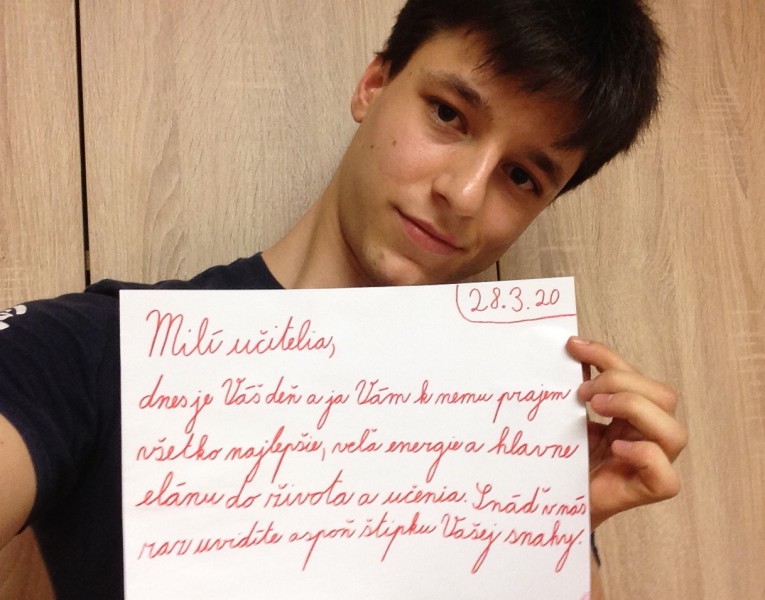 28.3.20
Milí učitelia,
dnes je Váš deň a ja Vám k nemu prajem
všetko najlepšie, veľa energie a hlavne
elánu do života a učenia. Snáď v nás
raz uvidíte aspoň štipku Vašej snahy.